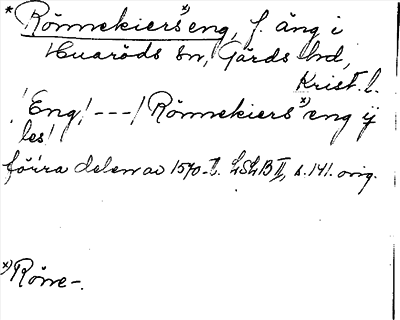 * Rönnekiers x) eng, f. äng i
Huaröds sn, Gärds hd,
Krist. l.
/Eng/ - - - / Rönnekiers x) eng ÿ
les/
förra delen av 1570-t. LSLB II, s. 141. orig.
x) Röne-.